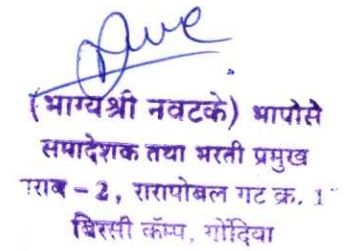 (भाग्यश्री नवटके) भापोसे
समादेशक तथा भरती प्रमुख
राब - 2, रारापोबल गट क्र. 1
बिरसी कॅम्प, गोंदिया